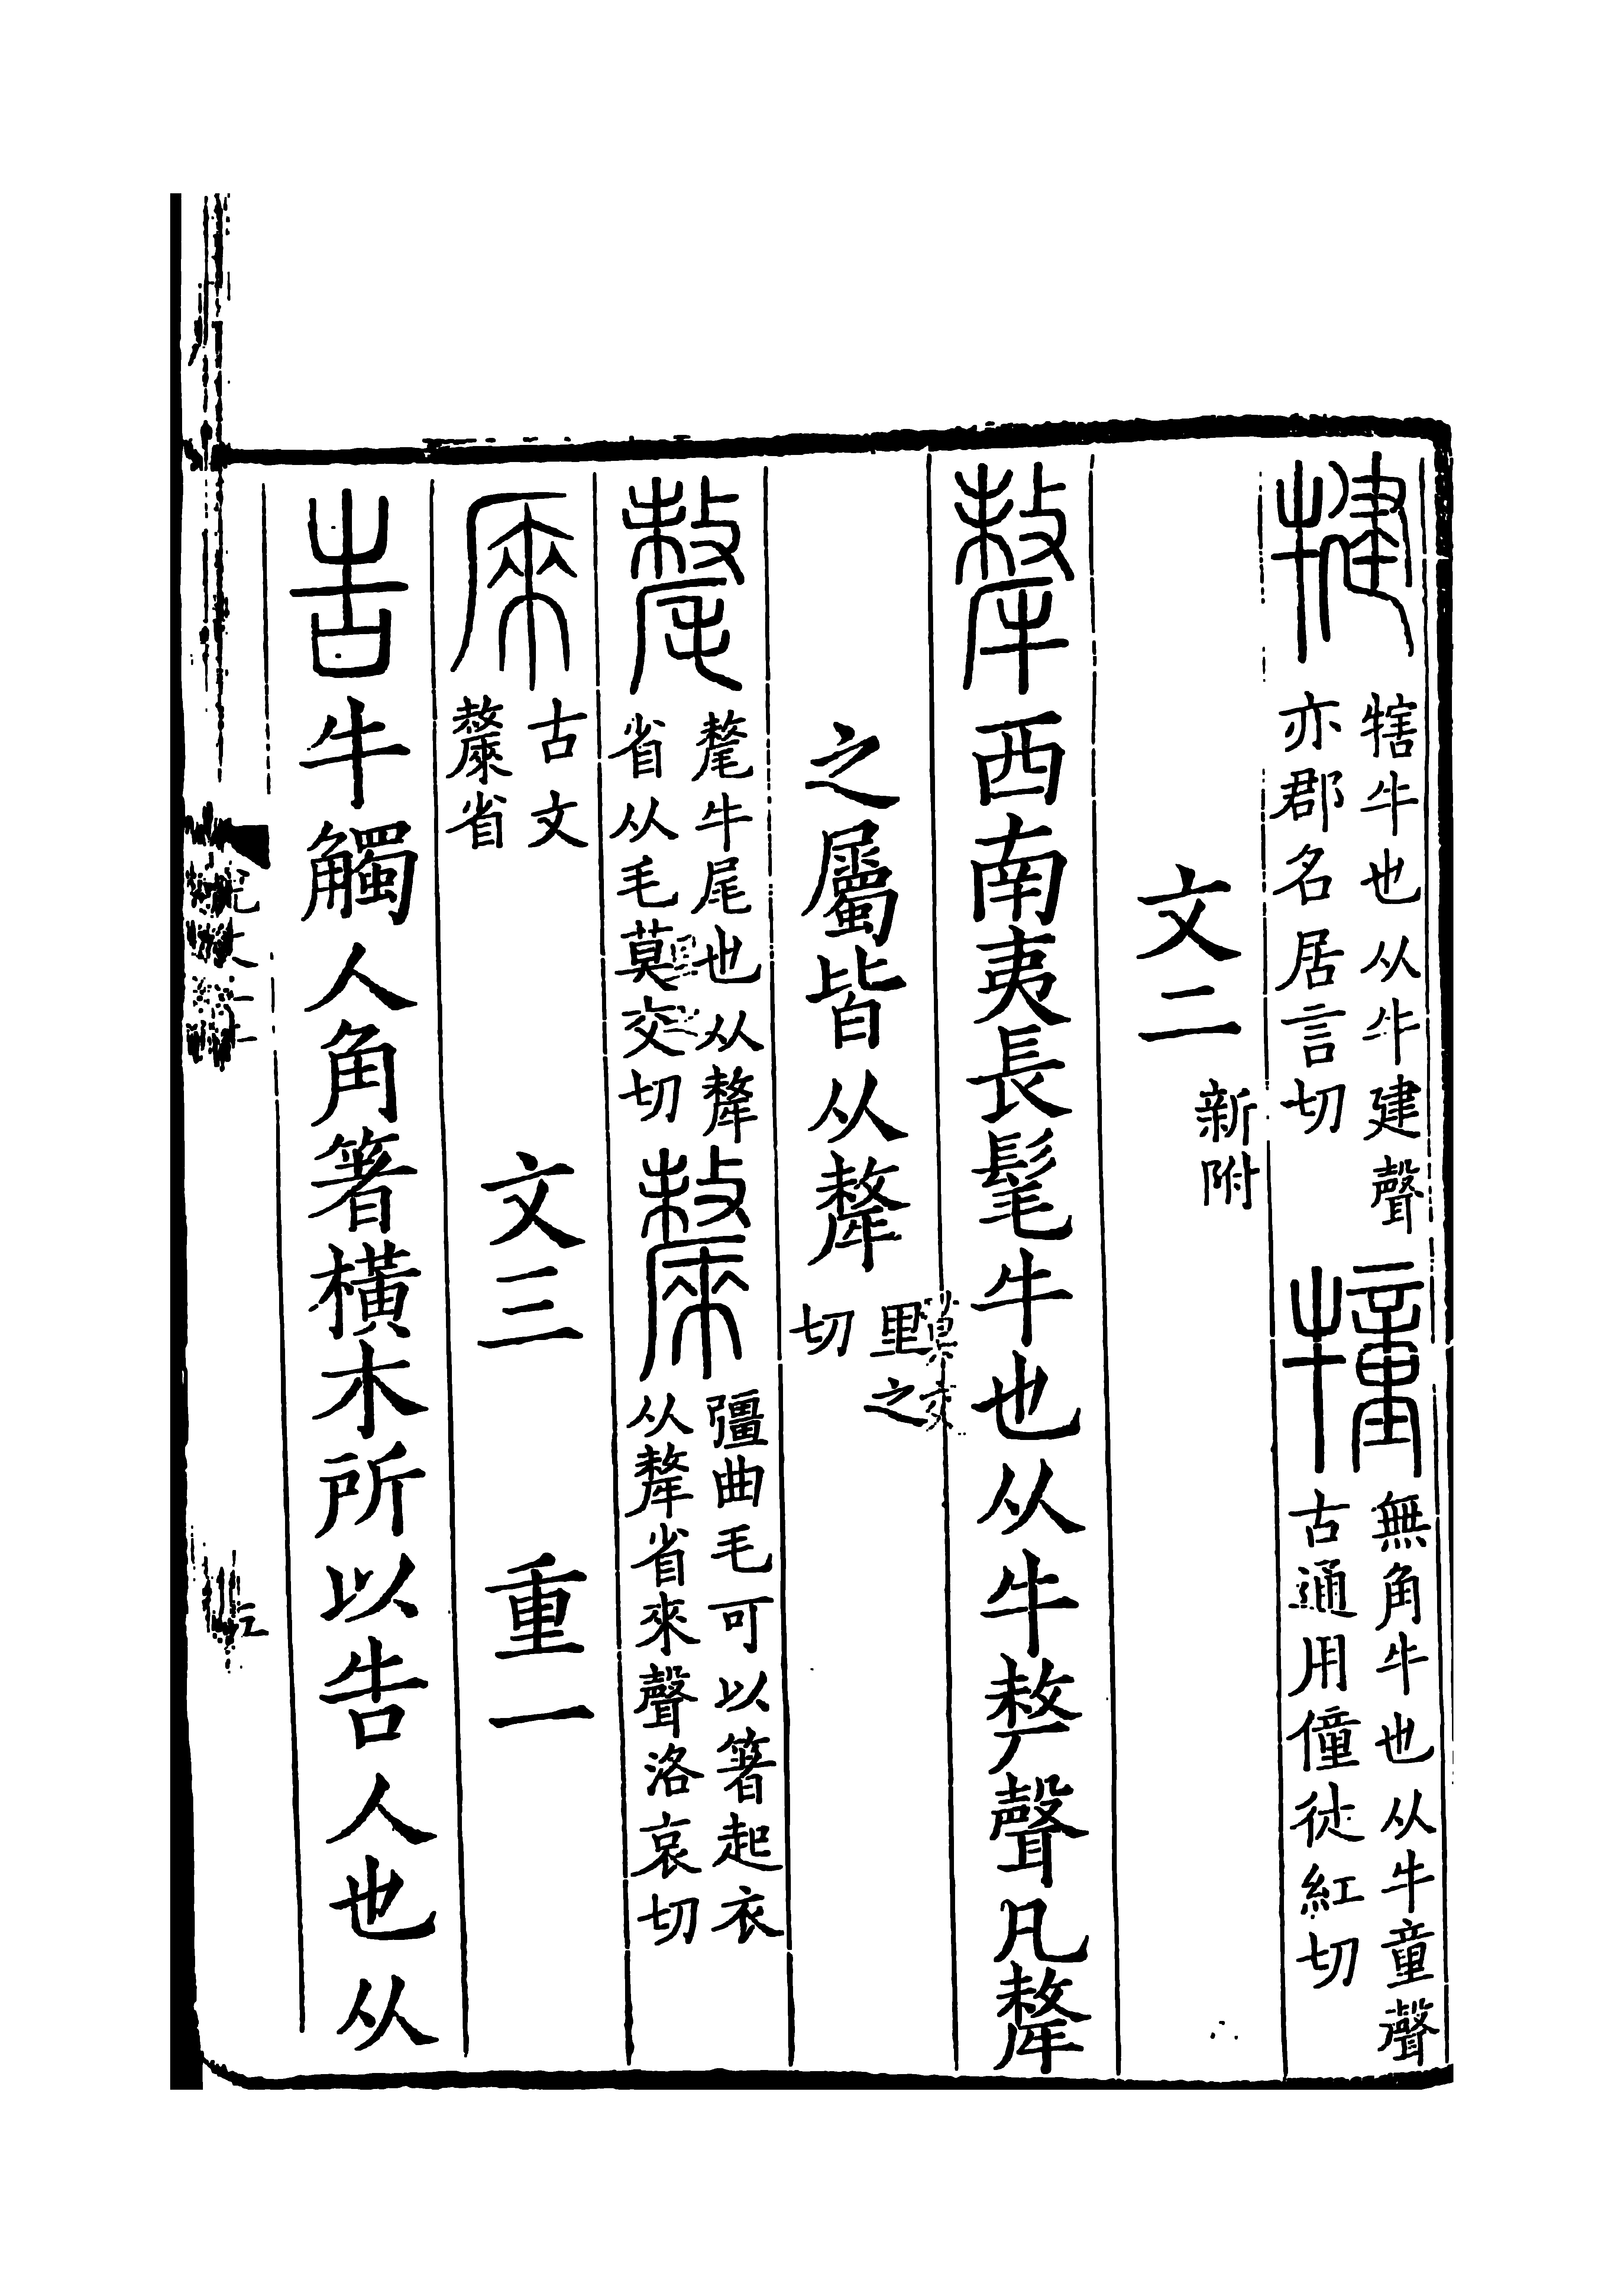 犍 犗牛也从牛建聲亦郡名居言切 犝 無角牛也从牛童聲古通用僮徒紅切
文二 新附
犛 西南夷長髦牛也从牛𠩺聲凡犛
之屬皆从犛 里之切
氂 犛牛尾也从犛省从毛莫交切 斄 彊曲毛可以箸起衣从犛省來聲洛哀切
𠩬 古文斄省 文三 重一
告 牛觸人角箸橫木所以告人也从